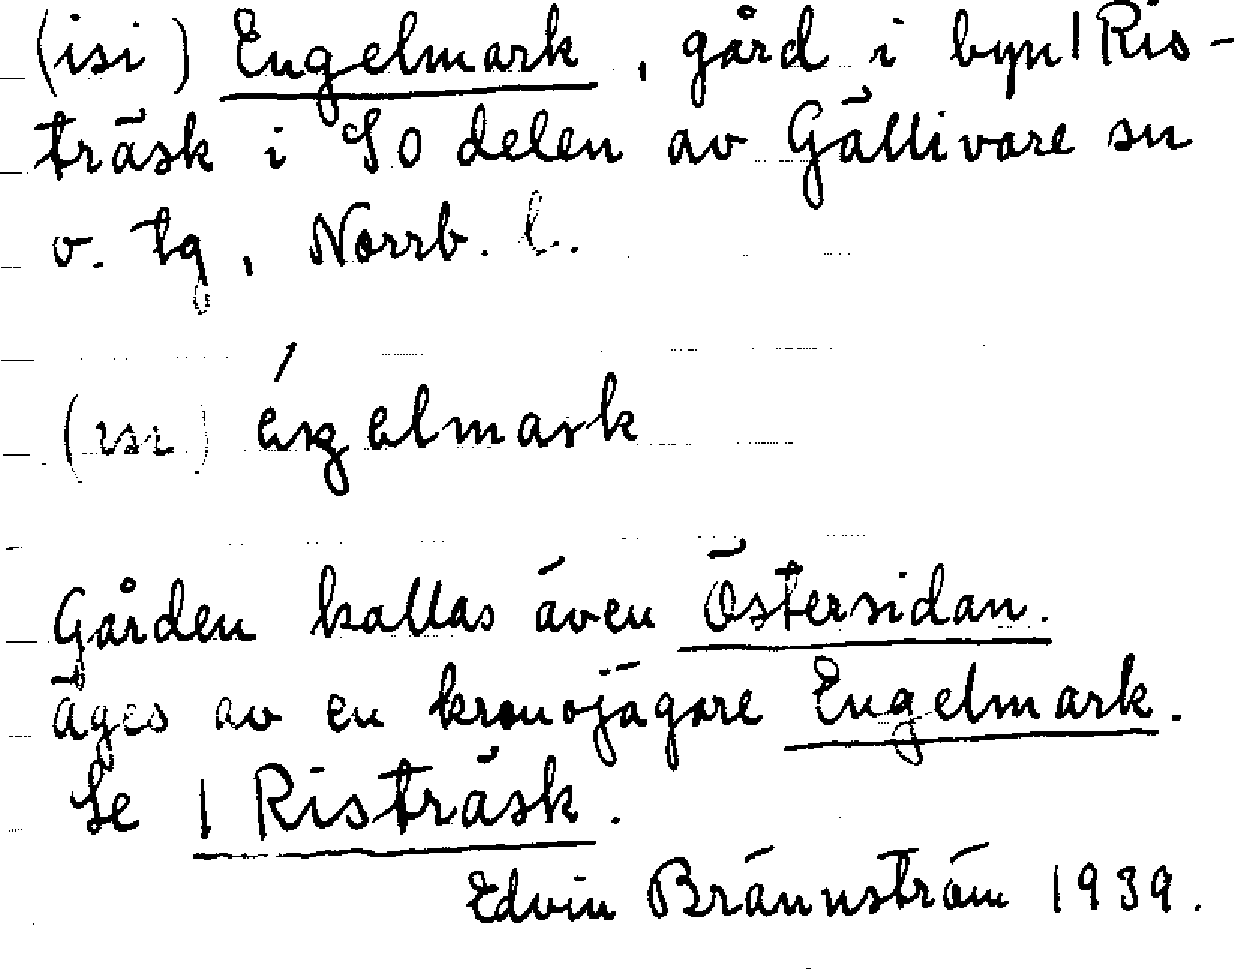 (isi) Engelmark, gård i byn 1 Ris-
träsk i SO delen av Gällivare sn
o. tg, Norrb. l.
(isi) éŋelmark
Gården kallas även Östersidan.
Äges av en kronojägare Engelmark.
Se 1 Risträsk.
Edvin Brännström 1939.